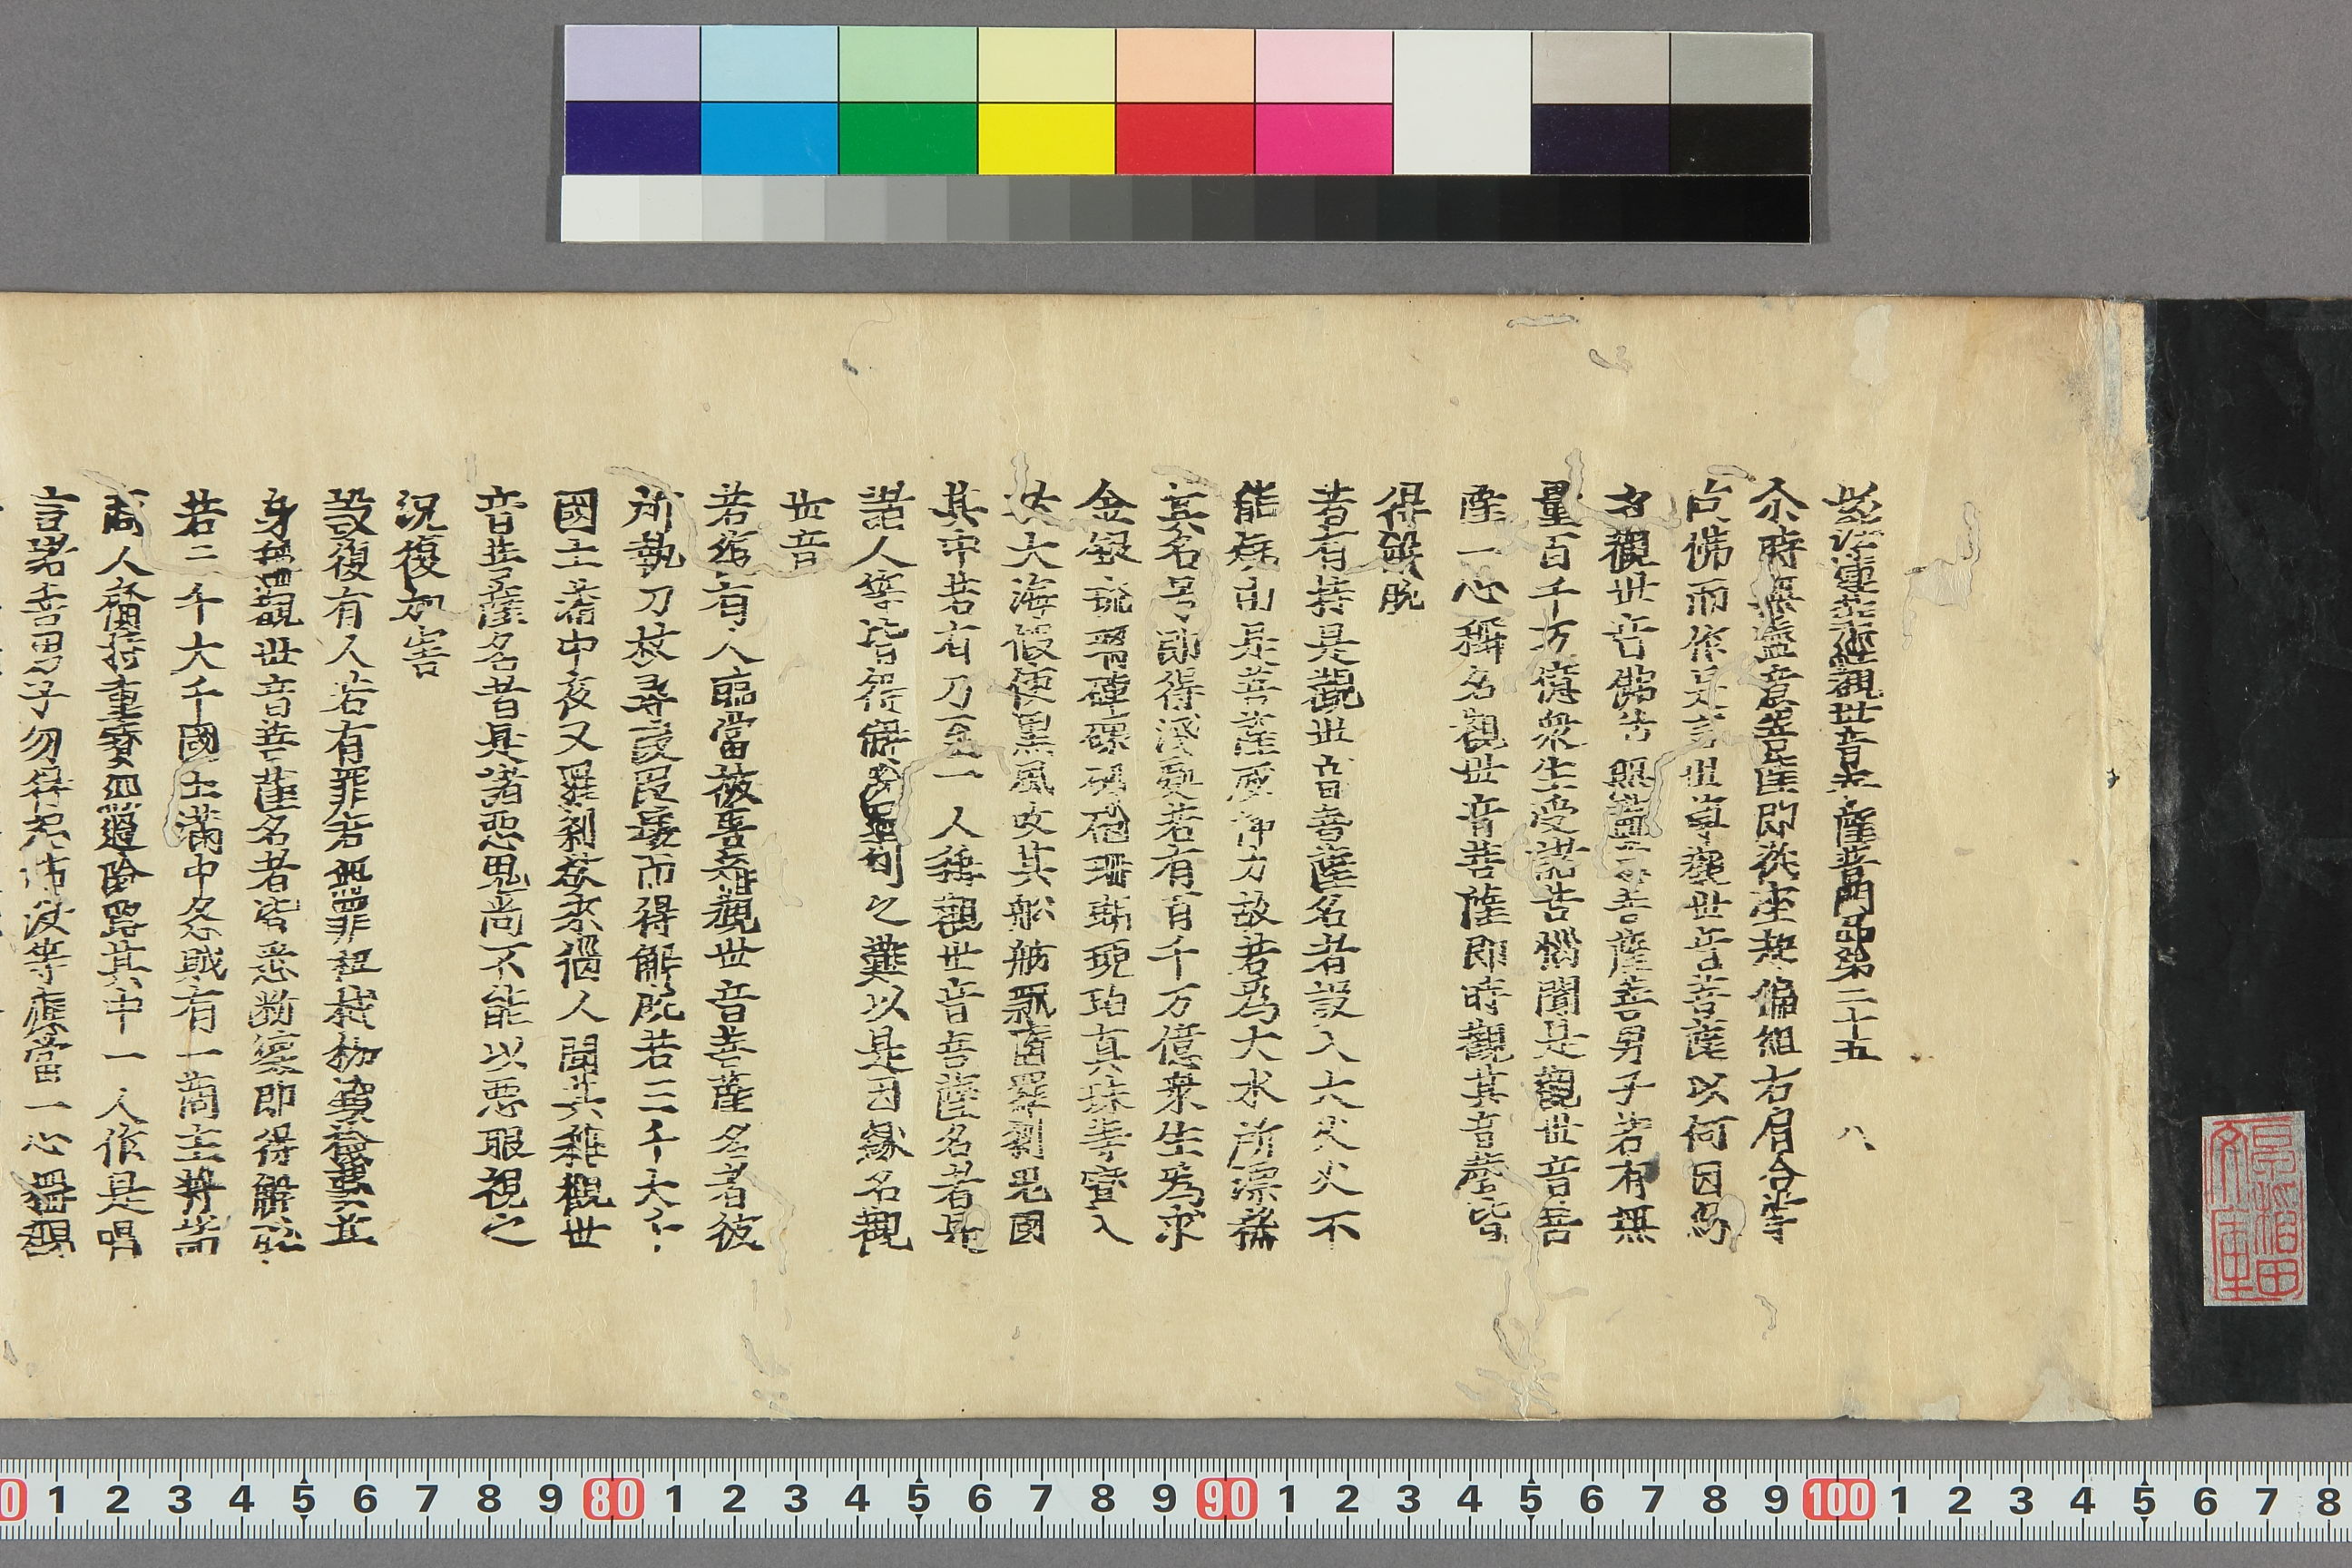 妙法蓮華經觀世音菩薩普門品第二十五　八
尒時無盡意菩薩即從座起偏袒右肩合掌
向佛而作是言世尊觀世音菩薩以何因
名觀世音佛告無盡意菩薩善男子若有無
量百千万億衆生受諸苦惱聞是觀世音菩
薩一心稱名觀世音菩薩即時觀其音聲皆
得解脫
若有持是觀世音菩薩名者設入大火火不
能燒由是菩薩威神力故若爲大水所漂稱
其名号即得淺處若有百千万億衆生爲求
金銀琉璃硨磲碼碯珊瑚琥珀真珠等寶入
於大海假使黑風吹其舩舫飄墮羅刹鬼國
其中若有乃至一人稱觀世音菩薩名者是
諸人等皆得解脫羅刹之難以是因緣名觀
世音
若復有人臨當被害稱觀世音菩薩名者彼
所執刀杖尋段段壞而得解脫若三千大千
國土滿中夜叉羅刹欲來惱人聞其稱觀世
音菩薩名者是諸惡鬼尚不能以惡眼視之
況復加害
設復有人若有罪若無罪杻械枷鎖檢繫其
身稱觀世音菩薩名者皆悉斷壞即得解脫
若三千大千國土滿中怨賊有一商主將諸
商人齎持重寶經過險路其中一人作是唱
言諸善男子勿得恐怖汝等應當一心稱觀
100 1 2 3 4 5 6 7 8 9
80 90